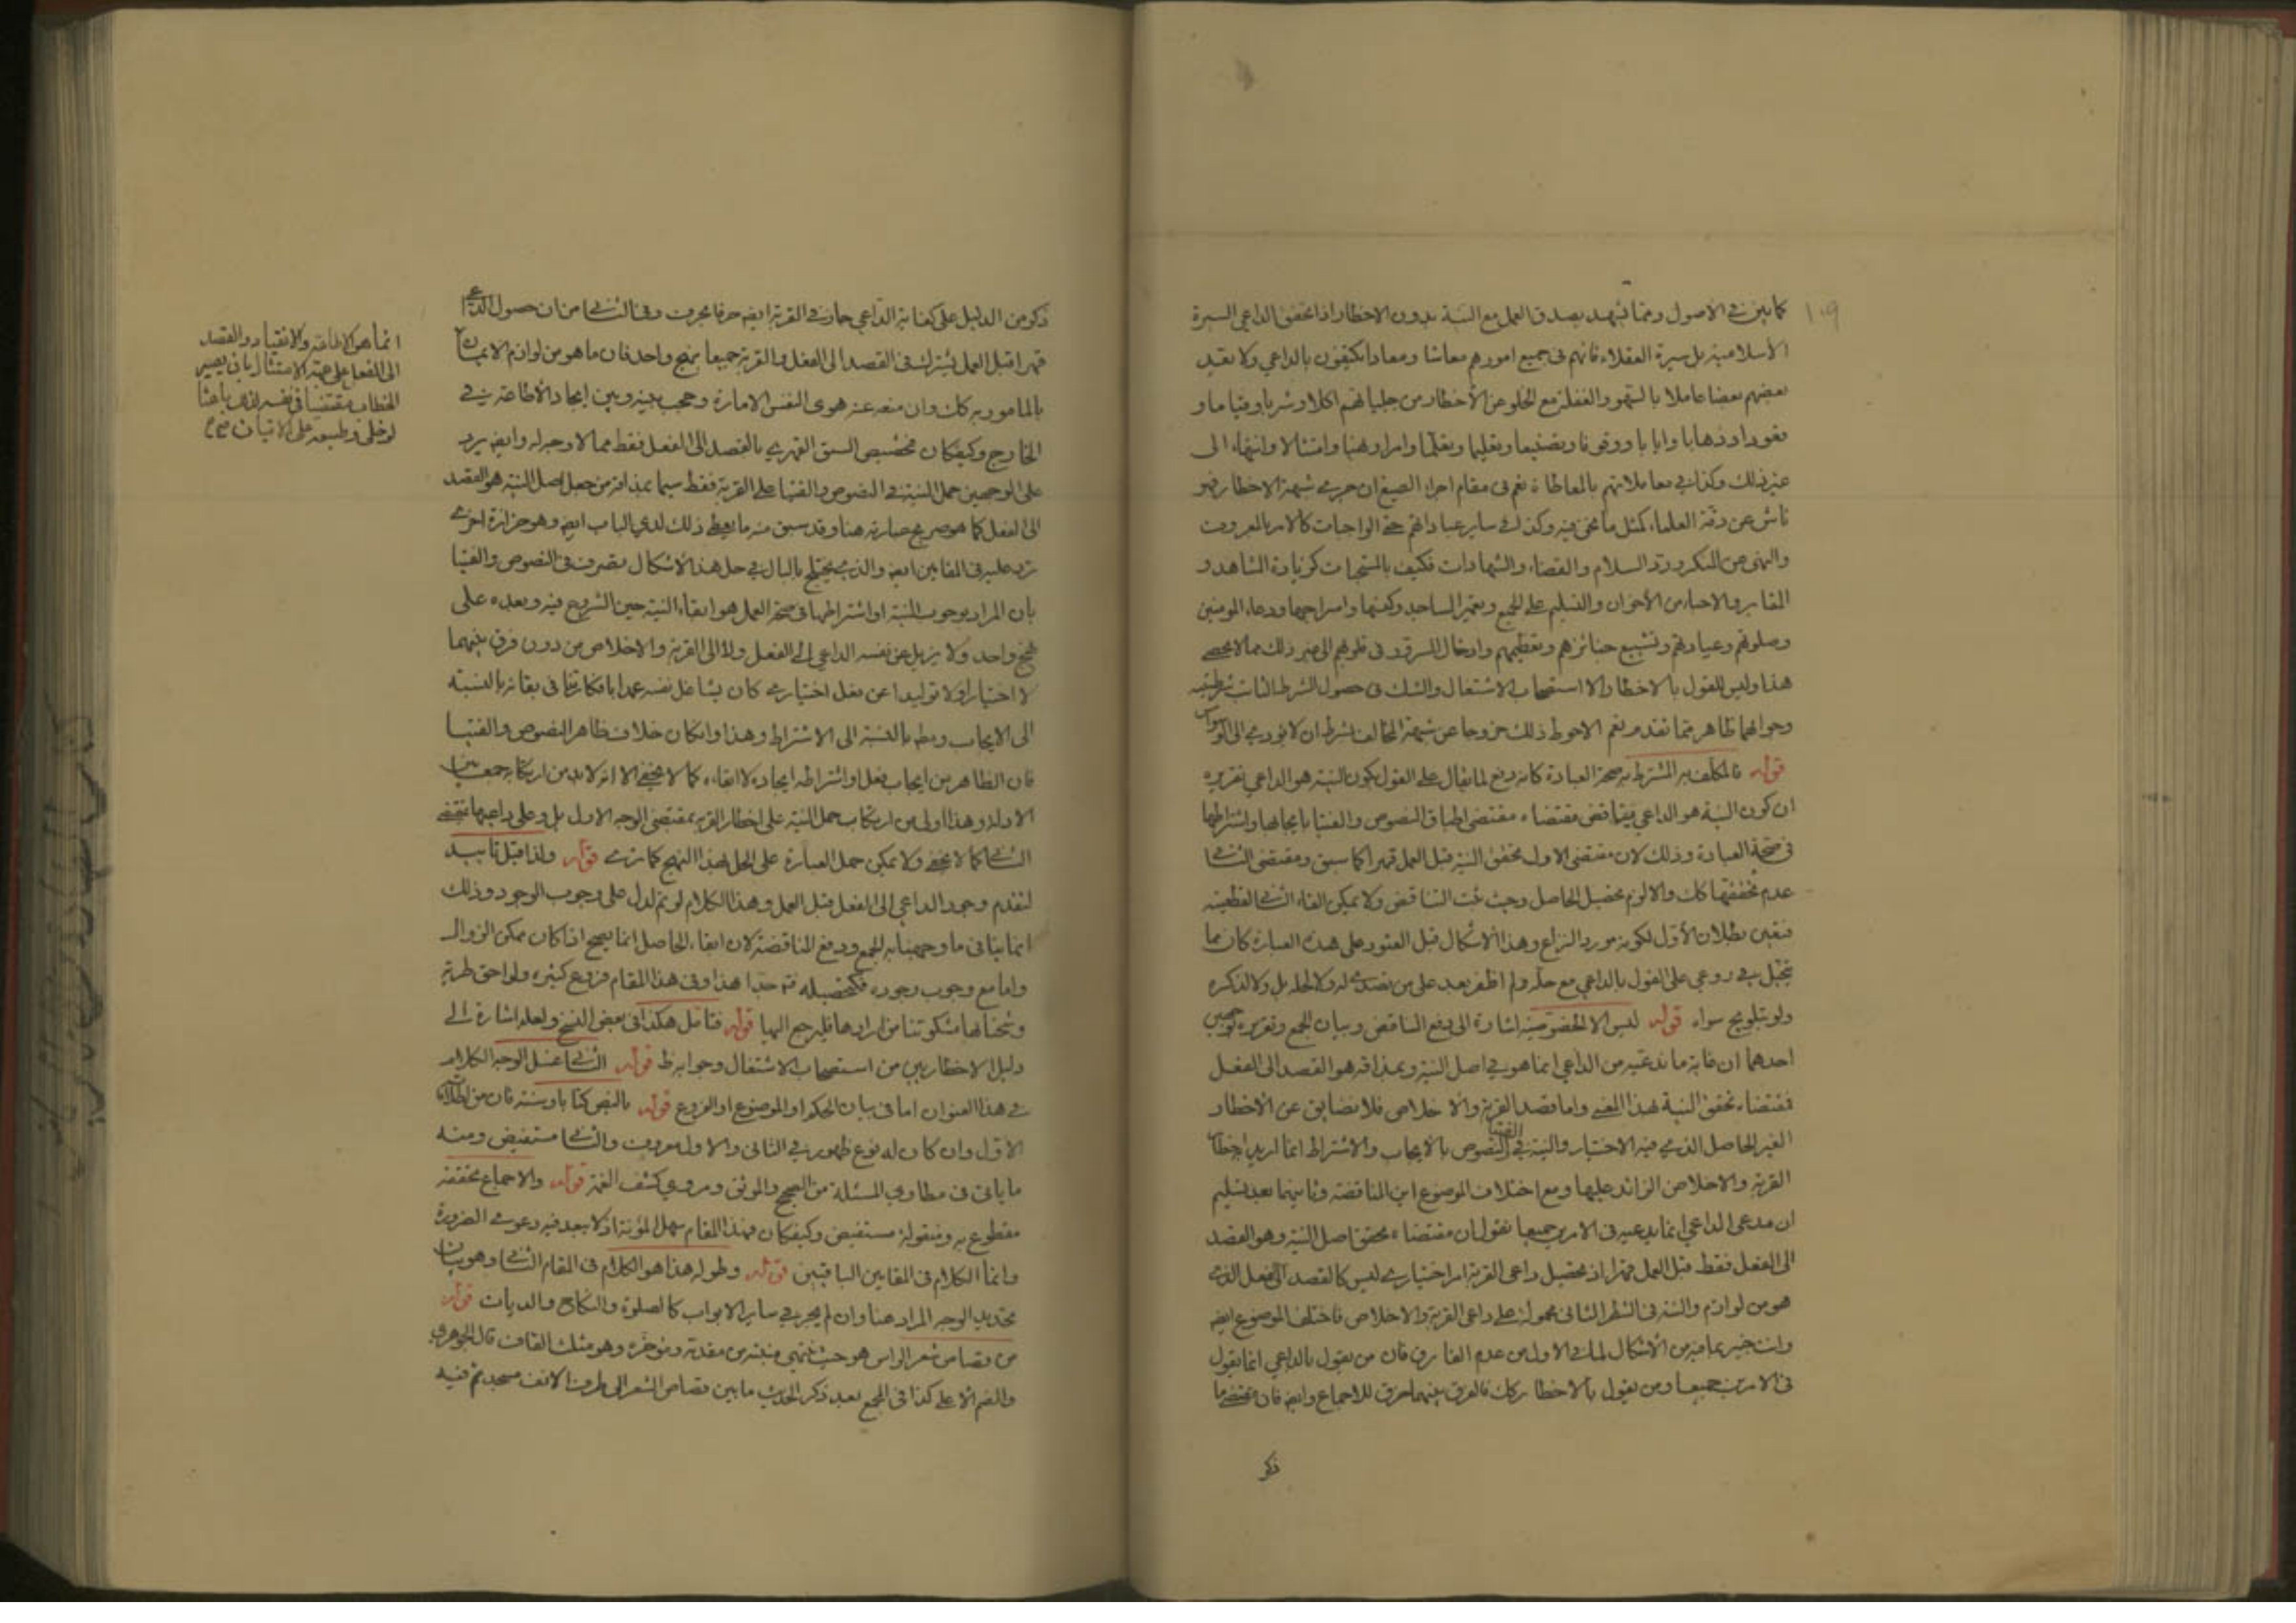 ١٠٩
كما بين في الأصول ومما يشهد بصدق العمل مع النية بدون الاخطار اذا تحقق الداعي السيرة
الأسلامية بل سيرة العقلاء فانهم فى جميع امورهم معاشا ومعادا يكتفون بالداعي ولا يعتد
بعضهم بعضا عاملا بالسهو والغفلة مع الخلو عن الأخطار من جلياتهم اكلا وشربا وقياما و
قعودا وذهابا وايابا ووقوفا وتصنيفا وتعليما وتعلما وامرا ونهيا وامتثالا وانتهاء الى
غير ذلك وكذا في معاملاتهم بالمعاطاة نعم فى مقام اجراء الصيغ ان جرى شبهة الاخطار فهو
ناش عن دقة العلماء كمثل ما نحن فيه وكذا في ساير عباداتهم حتى الواجبات كالامر بالمعروف
والنهى عن المنكر ورد السلام والقضاء والشهادات فكيف بالمستحبات كزيادة المشاهد و
المقابر والاحباء من الأخوان والتسليم على الجميع وتعمير المساجد وكنسها واسراجها ودعاء المومنين
وصلوتهم وعيادتهم وتشييع جنائزهم وتعظيمهم وادخال السرور فى قلوبهم الى غير ذلك مما لا يحصى
هذا وليس للقول بالاخطار الا استصحاب الاشتغال والشك فى حصول الشرط الثابت شرطيته
وجوابهما ظاهر مما تقدم نعم الاحوط ذلك خروجا عن شبهة المخالف بشرط ان لا يؤدي الى الوسواس
قوله فالمكلف به المشترط به صحة العبادة كانه دفع لما يقال على القول بكون النية هو الداعي تقريره
ان كون النية هو الداعي يناقض مقتضاه مقتضى اطباق النصوص والفتيا بايجابها واشتراطها
فى صحة العبادة وذلك لان مقتضى الاول تحقق النية قبل العمل قهرا كما سبق ومقتضى الثاني
عدم تحققها كك والا لزم تحصيل الحاصل وحيث ثبت التناقض ولا يمكن الغاء الثاني لقطعيته
فتعين بطلان الأول لكونه مورد النزاع وهذا الاشكال قبل العثور على هذه العبارة كان مما
يتخيل في روعي على القول بالداعي مع حله ولم اظفر بعد على من تصدى له ولا لحله بل ولا لذكره
ولو بتلويح سواه قوله ليس الا الخصوصية اشارة الى دفع التناقض وبيان الجمع وتقريره بوجهين
احدهما ان غاية ما ندعيه من الداعي انما هو في اصل النية وبمذاقه هو القصد الى الفعل
فمقتضاه تحقق النية بهذا المعنى واما قصد القربة والا خلاص فلا نضايق عن الاخطار
الغير الحاصل الذي فيه الاختيار والنية في النصوص والفتيا بالايجاب والاشتراط انما اريد اخطار
القربة والاخلاص الزائد عليها ومع اختلاف الموضوع اين المناقضة وثانيهما بعد تسليم
ان مدعى الداعي انما يدعيه فى الامرين جميعا نقول ان مقتضاه تحقق اصل النية وهو القصد
الى الفعل فقط قبل العمل قهرا اذ تحصيل داعى القربة امر اختياري ليس كالقصد الى الفعل الذي
هو من لوازم والنية فى الشطر الثانى محمولة على داعى القربة والاخلاص فاختلف الموضوع ايضا
وانت خبير بما فيه من الاشكال لما في الاول من عدم الفارق فان من يقول بالداعي انما يقول
فى الامرين جميعا ومن يقول بالاخطار كك فالفرق بينهما خرق للاجماع وايضا فان مقتضى ما
ذكر
ذكر من الدليل على كفاية الداعي جار في القربة ايضا حرفا بحرف وفي الثاني من ان حصول الداعي
قهرا قبل العمل يشترك فى القصد الى الفعل والقربة جميعا بنهج واحد فان ما هو من لوازم الايمان
بالمامور به كك وان منعه عنه هوى النفس الامارة وحجب بينه وبين ايجاد الاطاعة في
الخارج وكيفكان تخصيص السبق القهري بالقصد الى الفعل فقط مما لا وجه له وايضا يرد
على الوجهين حمل النية في النصوص والفتيا على القربة فقط سيما بمذاقه من جعل اصل النية هو القصد
الى الفعل كما هو صريح عبارته هنا وقد سبق منه ما يعطي ذلك لدى الباب ايضا وهو حزازة اخرى
ترد عليه فى المقامين ايضا والذي يختلج بالبال في حل هذا الأشكال تصرف فى النصوص والفتيا
بان المراد بوجوب النية او اشتراطها فى صحة العمل هو ابقاء النية حين الشروع فيه وبعده على
نهج واحد ولا يزيل عن نفسه الداعي الى الفعل ولا الى القربة والاخلاص من دون فرق بينهما
لا اختيارا ولا توليدا عن فعل اختياري كان يشاغل نفسه عمدا بافكار تنافي بقائه بالنسبة
الى الايجاب ومطم بالنسبة الى الاشتراط وهذا وانكان خلاف ظاهر النصوص والفتيا
فان الظاهر من ايجاب فعل او اشتراطه ايجاده لا ابقاءه كما لا يخفى الا انه لا بد من ارتكابه جمعا بين
الادلة وهذا اولى من ارتكاب حمل النية على اخطار القربة بمقتضى الوجه الاول بل وعلى داعيها بمقتضى
الثاني كما لا يخفى ولا يمكن حمل العبارة على الحل بهذا النهج كما ترى قوله ولذا قيل تأييد
لتقدم وجود الداعي الى الفعل قبل العمل وهذا الكلام لو تم لدل على وجوب الوجود وذلك
انما ينافى ما وجهنا به الجمع ودفع المناقضة لان ابقاء الحاصل انما يصح اذا كان ممكن الزوال
واما مع وجوب وجوده فكتحصيله فتم جدا هذا وفى هذا المقام فروع كثيره ولواحق طرية
وشحنا بها مشكوتنا من ارادها فليرجع اليها قوله فتامل هكذا فى بعض النسخ ولعله اشارة الى
دليل الاخطاريين من استصحاب الاشتغال وجوابه ظ قوله الثاني غسل الوجه الكلام
في هذا العنوان اما فى بيان الحكم او الموضوع او الفروع قوله بالنص كتابا وسنة فان من اطلاق
الاول وان كان له نوع ظهور في الثانى والاول معروف والثاني مستفيض ومنه
ما ياتى فى مطاوي المسئلة من الصحيح والموثق ومروي كشف الغمة قوله والاجماع محققه
مقطوع به ومنقوله مستفيض وكيفكان فهذا المقام سهل المؤنة اذ لا يبعد فيه دعوى الضرورة
وانما الكلام فى المقامين الباقيين قوله وطوله هذا هو الكلام فى المقام الثاني وهو بيان
تحديد الوجه المراد هنا وان لم يجر في ساير الابواب كالصلوة والنكاح والديات قوله
من قصاص شعر الراس هو حيث ينتهي منبته من مقدمه ومؤخره وهو مثلث القاف قال الجوهري
والضم الاعلى كذا فى المجمع بعد ذكر الحديث ما بين قصاص الشعر الى طرف الانف مسجد ثم فيه
انما هو الاطاعة والانقياد والقصد
الى الفعل على جهة الامتثال بان يصير
الخطاب مقتضيا فى نفسه لذلك باعثا
لو خلى وطبعه على الاتيان